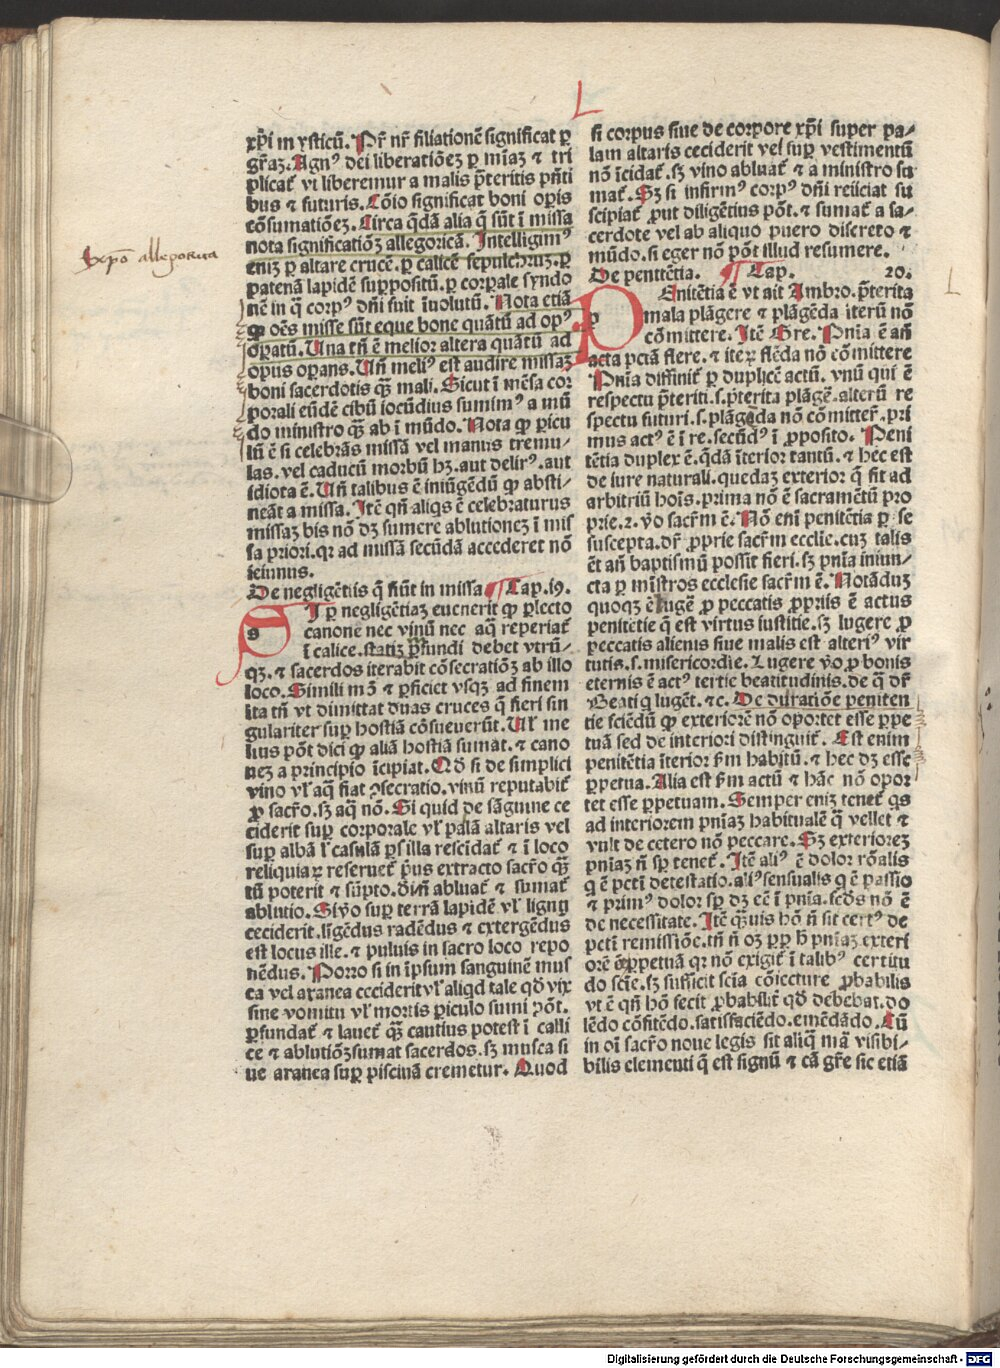 L
xp̄i mysticū. Pr̄ nr̄ filiationē significat ꝑ
gr̄aꝫ. Agn⁹ dei liberatiōeꝫ ꝑ mīaꝫ ⁊ tri
plicat᷑ vt liberemur a malis p̄teritis pn̄ti
bus ⁊ futuris. Cōio significat boni oꝑis
cōsumatiōeꝫ. Circa q̄dā alia q̄ sūt ī missa
nota significatiōꝫ allegoricā. Intelligim⁹
eniꝫ ꝑ altare crucē. ꝑ calicē sepulchruꝫ. ꝑ
patenā lapidē suppositū. ꝑ corpale syndo
nē in q̄ corp⁹ dn̄i fuit īuolutū. Nota etiā
ꝙ oēs misse sūt eque bone quātū ad op⁹
oꝑatū. Una tn̄ ē melior altera quātū ad
opus oꝑans. Un̄ meli⁹ est audire missaꝫ
boni sacerdotis qꝫ mali. Sicut ī mēsa cor
porali eūdē cibū iocūdius sumim⁹ a mū
do ministro qꝫ ab ī mūdo. Nota ꝙ ꝑicu
lū ē si celebrās missā vel manus tremu-
las. vel caducū morbū hꝫ. aut delir⁹. aut
idiota ē. Un̄ talibus ē iniūgēdū ꝙ absti-
neāt a missa. Itē qn̄ aliqs ē celebraturus
missaꝫ bis nō dꝫ sumere ablutioneꝫ ī mis
sa priori. qꝛ ad missā secūdā accederet nō
ieiunus.
De negligētiis q̄ fiūt in missa Cap. 19.
SI ꝑ negligētiaꝫ euenerit ꝙ ꝑlecto
canone nec vinū nec aq̄ reperiat᷑
ī calice. statiꝫ p̄fundi debet vtrū-
qꝫ. ⁊ sacerdos iterabit cōsecratiōꝫ ab illo
loco. Simili mō ⁊ ꝑficiet vsqꝫ ad finem
ita tn̄ vt dimittat duas cruces q̄ fieri sin
gulariter suꝑ hostiā cōsueuerūt. Ul̄ me
lius pōt dici ꝙ aliā hostiā sumat. ⁊ cano
neꝫ a principio īcipiat. Qd̄ si de simplici
vino vl̄ aq̄ fiat ꝯsecratio. vinū reputabit᷑
ꝓ sacr̄o. sꝫ aq̄ nō. Si quid de sāguine ce
ciderit suꝑ corporale vl̄ palā altaris vel
suꝑ albā l̄ casulā ꝑs illa rescidat᷑ ⁊ ī loco
reliquiaꝝ reseruet᷑ p̄us extracto sacr̄o qꝫ
tū poterit ⁊ sūpto. Vinū abluat᷑ ⁊ sumat᷑
ablutio. Si v̄o suꝑ terrā lapidē vl̄ lignū
ceciderit. līgēdus radēdus ⁊ extergēdus
est locus ille. ⁊ puluis in sacro loco repo
nēdus. Porro si in ipsum sanguinē mus
ca vel aranea ceciderit vl̄ aliqd tale qd̄ vix
sine vomitu vl̄ mortis ꝑiculo sumi pōt.
ꝑfundat᷑ ⁊ lauet᷑ qꝫ cautius potest ī calli
ce ⁊ ablutiōꝫ sumat sacerdos. sꝫ musca si
ue aranea suꝑ piscinā cremetur. Quod
Expō allegorica
si corpus siue de corpore xp̄i super pa-
lam altaris ceciderit vel suꝑ vestimentū
nō īcidat᷑. sꝫ vino abluat᷑ ⁊ a ministro su
mat᷑. Sꝫ si infirm⁹ corp⁹ dn̄i reiiciat su
scipiat᷑ ꝓut diligētius pōt. ⁊ sumat᷑ a sa-
cerdote vel ab aliquo puero discreto ⁊
mūdo. si eger nō pōt illud resumere.
De penitētia. Cap. 20.
PEnitētia ē vt ait Ambro. p̄terita
mala plāgere ⁊ plāgēda iterū nō
cōmittere. Itē Gre. Pn̄ia ē an̄
acta pctā flere. ⁊ iteꝝ flēda nō cōmittere
Pn̄ia diffinit᷑ ꝑ duplicē actū. vnū qui ē
respectu p̄teriti. s. p̄terita plāgē. alterū re
spectu futuri. s. plāgēda nō cōmitter̄. pri
mus act⁹ ē ī re. secūd⁹ ī ꝓposito. Peni
tētia duplex ē. q̄dā īterior tantū. ⁊ hec est
de iure naturali. quedaꝫ exterior q̄ fit ad
arbitriū hoīs. prima nō ē sacramētū pro
prie. 2. v̄o sacr̄m ē. Nō enī penitētia ꝑ se
suscepta. dr̄ ꝓprie sacr̄m ecclīe. cuꝫ talis
ēt an̄ baptismū possit fieri. sꝫ pn̄ia iniun-
cta ꝑ mīstros ecclesie sacr̄m ē. Notāduꝫ
quoqꝫ ē lugē ꝓ peccatis ꝓpriis ē actus
penitētie q̄ est virtus iustitie. sꝫ lugere ꝓ
peccatis alienis siue malis est alteri⁹ vir
tutis. s. misericordie. Lugere v̄o ꝓ bonis
eternis ē act⁹ tertie beatitudinis. de q̄ dr̄
Beati q lugēt. ⁊c. De duratiōe peniten
tie sciēdū ꝙ exteriorē nō oportet esse ꝑpe
tuā sed de interiori distinguit᷑. Est enim
penitētia īterior ẜm habitū. ⁊ hec dꝫ esse
ꝑpetua. Alia est ẜm actū ⁊ hāc nō opor
tet esse ꝑpetuam. Semper eniꝫ tenet᷑ qs
ad interiorem pn̄iaꝫ habitualē q̄ vellet ⁊
vult de cetero nō peccare. Sꝫ exterioreꝫ
pn̄iaꝫ n̄ sꝑ tenet᷑. Itē ali⁹ ē dolor rōalis
q ē pcti detestatio. ali⁹ sensualis q ē passio
⁊ prim⁹ dolor sꝑ dꝫ eē ī pn̄ia. scd̄s nō ē
de necessitate. Itē qꝫuis hō n̄ sit cert⁹ de
pcti remissiōe. tn̄ n̄ oꝫ ꝑꝑ h̄ pn̄iaꝫ exteri
orē ē ꝑpetuā qꝛ nō exigit᷑ ī talib⁹ certitu
do scīe. sꝫ sufficit scīa cōiecture ꝓbabilis
vt ē qn̄ hō fecit ꝓbabilit᷑ qd̄ debebat. do
lēdo cōfitēdo. satisfaciēdo. emēdādo. Cū
in oī sacr̄o noue legis sit aliq̄ mā visibi-
bilis elementi q̄ est signū ⁊ cā gr̄e sic etiā
L
Digitalisierung gefördert durch die Deutsche Forschungsgemeinschaft - DFG